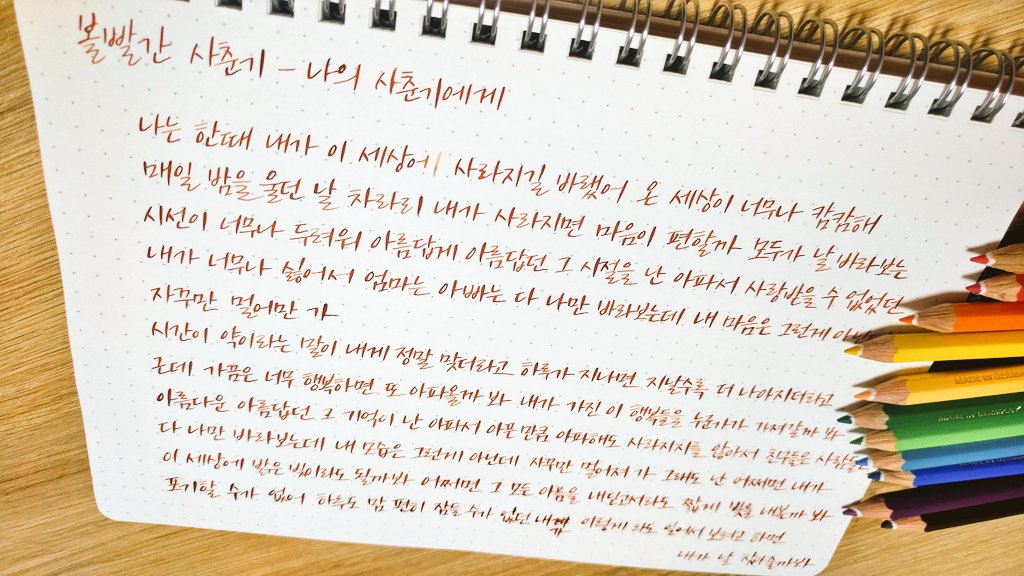 볼빨간 사춘기 - 나의 사춘기에게
나는 한때 내가 이 세상에 사라지길 바랬어 온 세상이 너무나 캄캄해
매일 밤을 울던 날 차라리 내가 사라지면 마음이 편할까 모두가 날 바라보는
시선이 너무나 두려워 아름답게 아름답던 그 시절을 난 아파서 사랑받을 수 없었던
내가 너무나 싫어서 엄마는 아빠는 다 나만 바라보는데 내 마음은 그런게
자꾸만 멀어만 가
시간이 약이라는 말이 내게 정말 맞더라고 하루가 지나면 지날수록 더 나아지더라고
근데 가끔은 너무 행복하면 또 아파올까 봐 내가 가진 이 행복들을 누군가가 가져갈까 봐
아름다운 아름답던 그 기억이 난 아파서 아픈만큼 아파해도 사라지지를 않아서 친구들은 사람들은
다 나만 바라보는데 내 모습은 그런게 아닌데 자꾸만 멀어져 가 그래도 난 어쩌면 내가
이 세상에 밝은 빛이라도 될까봐 어쩌면 그 모든 아픔을 내딛고서라도 짧게 빛을 내볼까 봐
포기할 수가 없어 하루도 맘 편히 잠들 수가 없던 내가 이렇게라도 일어서 보려고 하면
내가 날 찾아줄까봐
MADE IN GERMANY